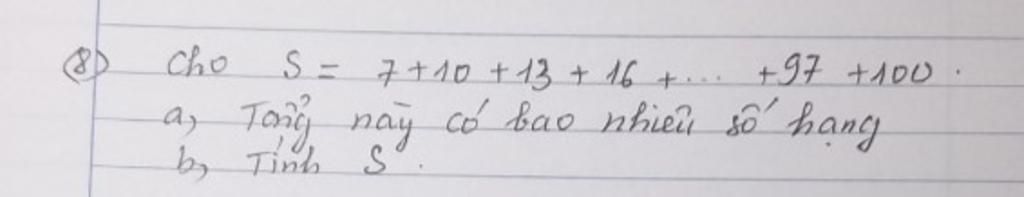 (8) Cho S = 7 + 10 + 13 + 16 + ... + 97 + 100 .
a, Tổng này có bao nhiêu số hạng
b, Tính S .